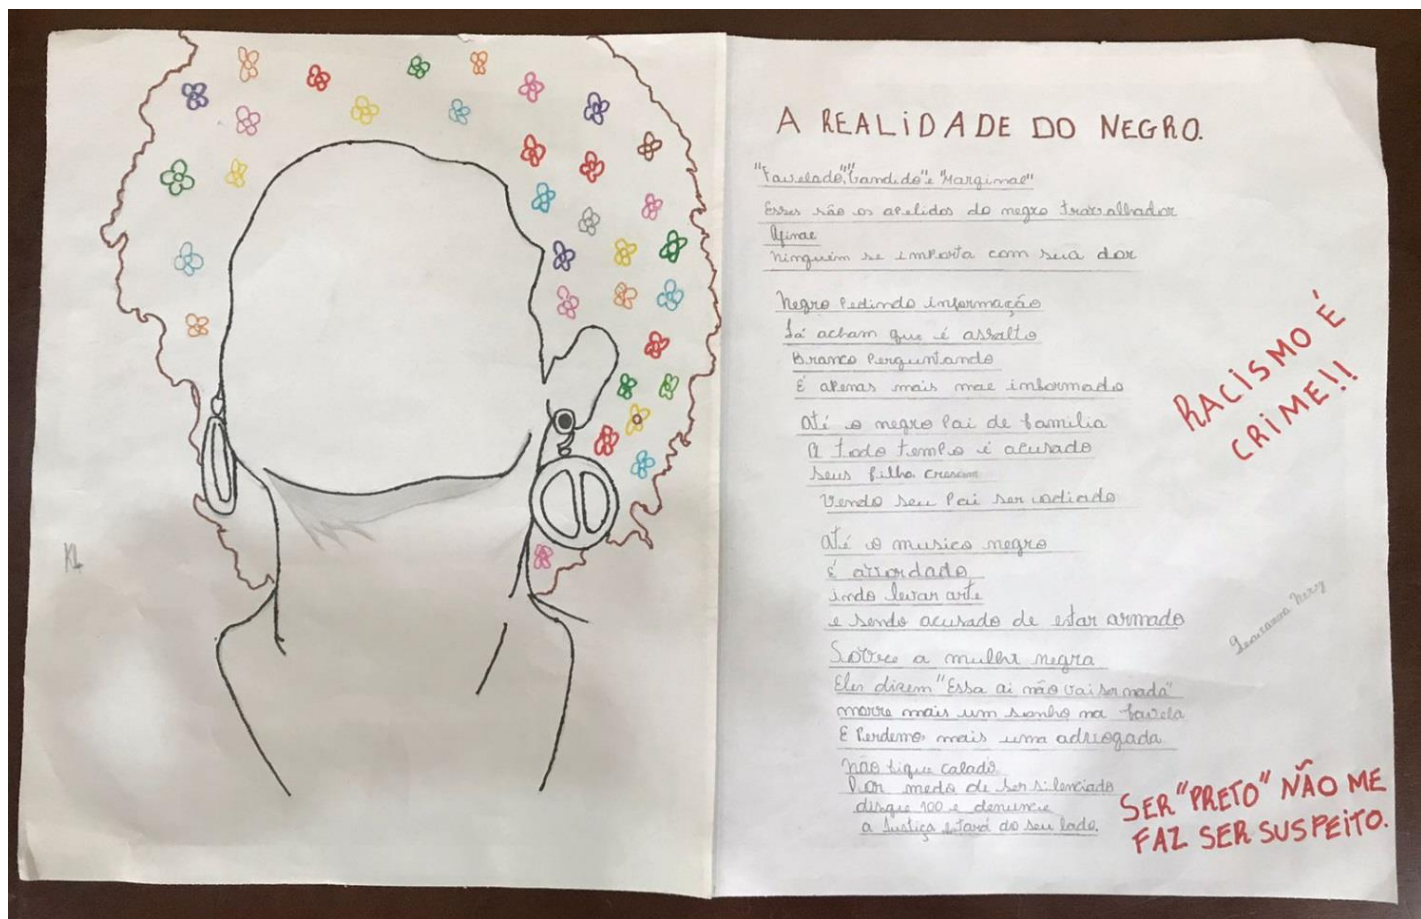 A REALIDADE DO NEGRO.
"Favelado", "bandido" e "Marginal"
Esses são os apelidos do negro trabalhador
Afinal
ninguém se importa com sua dor
Negro Pedindo informação
Já acham que é assalto
Branco Perguntando
É apenas mais mal informado
Até o negro Pai de família
A todo tempo é acusado
Seus filho crescem
Vendo seu Pai ser odiado
Até o musico negro
É abordado
indo levar arte
e sendo acusado de estar armado
Sobre a mulher negra
Eles dizem "Essa ai não vai ser nada"
morre mais um sonho na favela
E Perdemo mais uma advogada
Não fique calado
Por medo de ser silenciado
disque 100 e denuncie
a Justiça estará do seu lado.
RACISMO É
CRIME!!
SER "PRETO" NÃO ME
FAZ SER SUSPEITO.